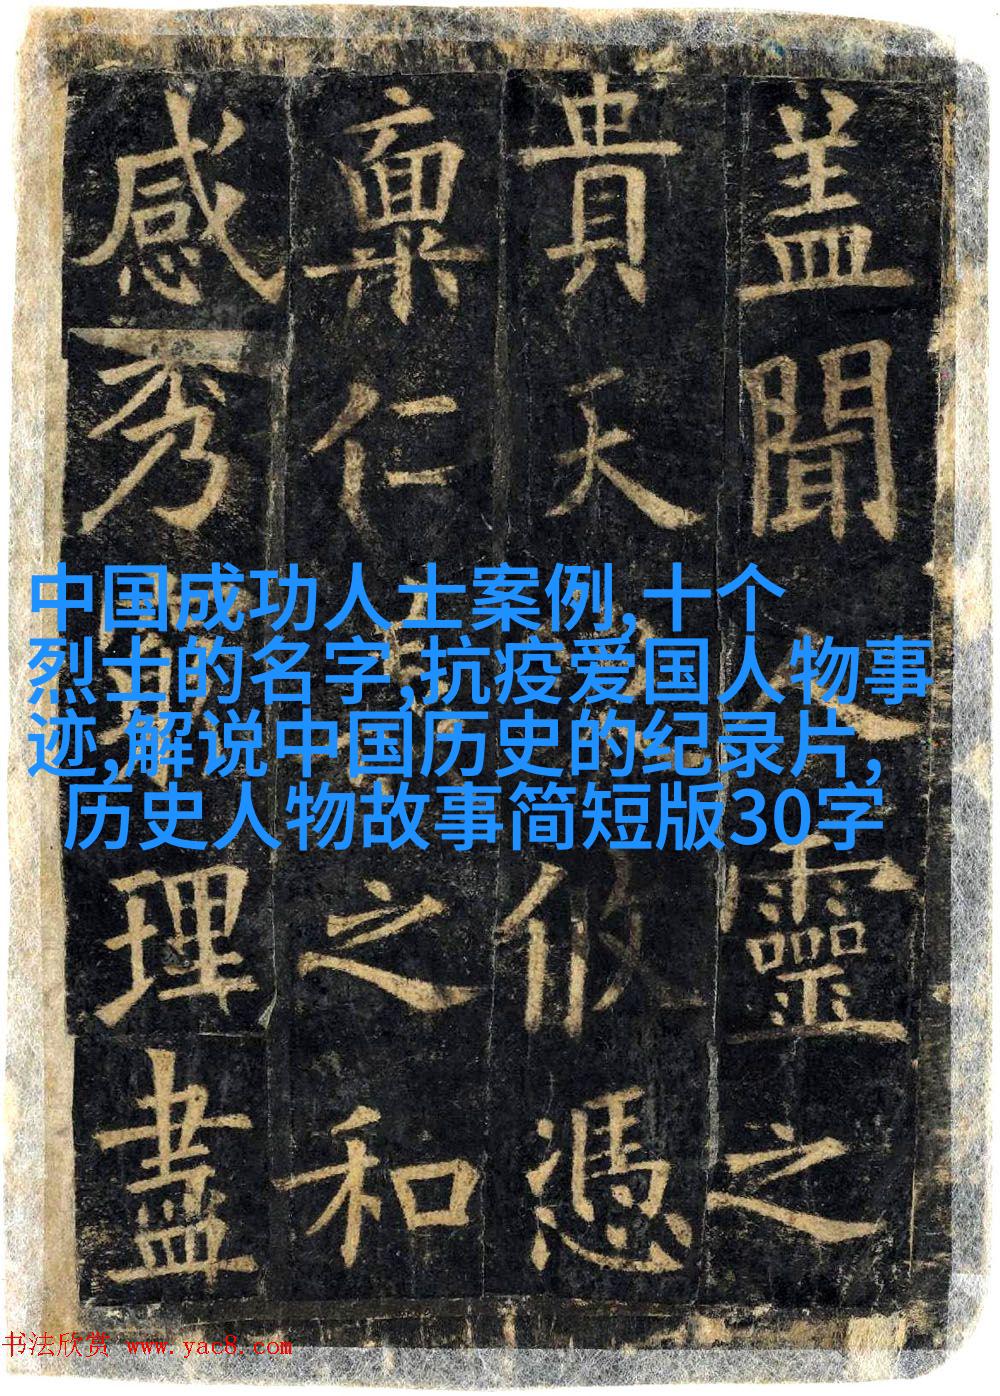 盖聞人靈之
貴天攸憑
稟仁之和
感秀理盡
中国成功人士案例,十个
烈士的名字,抗疫爱国人物事
迹,解说中国历史的纪录片,
历史人物故事简短版30字
书法欣赏 www.yac8.com